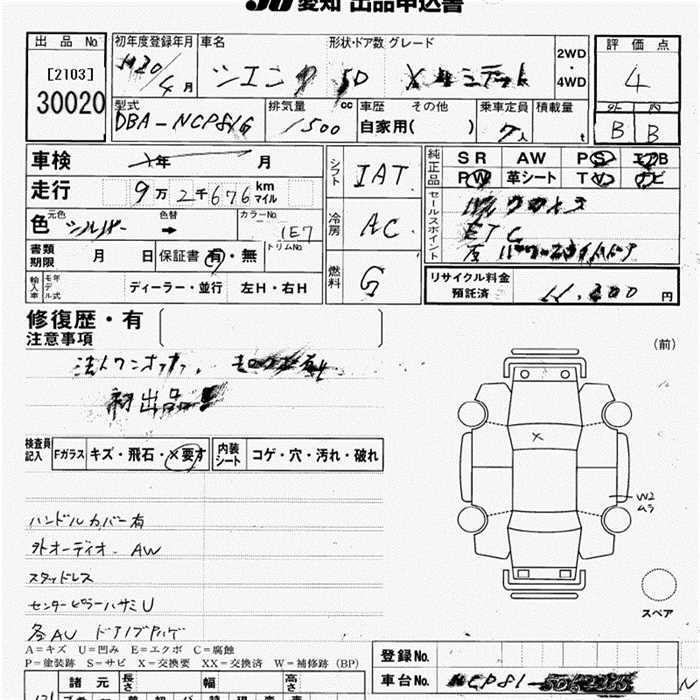 JU 愛知 出品申込書
出品 No
[2103]
30020
初年度登録年月 車名 形状・ドア数 グレード
H20/4月 シエンタ 5D X リミテッド
2WD
・
4WD
評価点
4
外 内
B B
型式 排気量 cc 車歴 その他 乗車定員 積載量
DBA-NCP81G 1500 自家用( ) 7人 t
車検 年 月
走行 9万2千676 km マイル
色 元色 色替 カラーNo.
シルバー → 1E7
書類期限 月 日 保証書 有・無 トリムNo
輸入車 モデル年式 ディーラー・並行 左H・右H
シフト IAT
冷房 AC
燃料 G
純正品 SR AW PS エアB
PW 革シート TV ナビ
セールスポイント
ETC
リサイクル料金
預託済 円
修復歴・有
注意事項
法人ワンオーナー、
初出品!
(前)
検査員記入 Fガラス キズ・飛石・X要す 内装シート コゲ・穴・汚れ・破れ
X
W2
ムラ
ハンドルカバー有
外オーディオ- AW
スタッドレス
センターピラーハサミU
各AU ドアノブアルゲ
スペア
A=キズ U=凹み E=エクボ C=腐蝕
P=塗装跡 S=サビ X=交換要 XX=交換済 W=補修跡(BP)
登録No.
車台No. NCP81-
諸元 長さ 幅 高さ